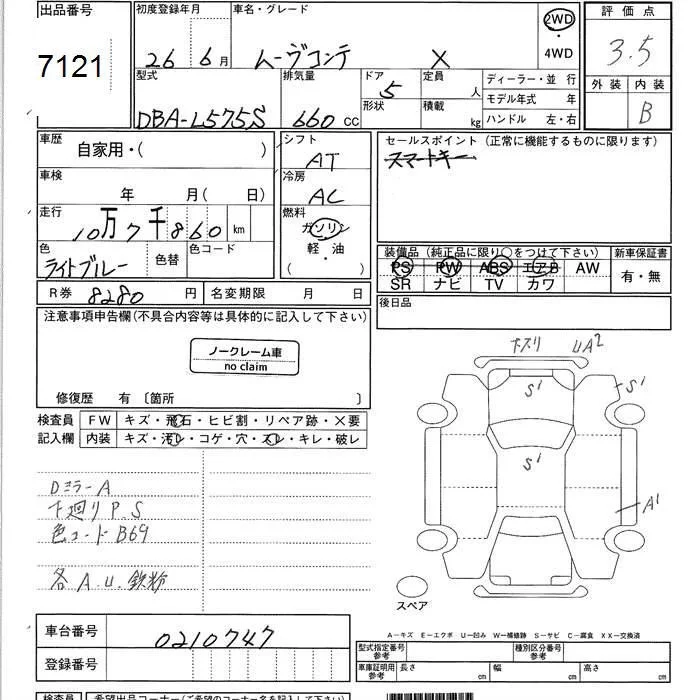 出品番号 初度登録年月 車名・グレード 2WD 評価点
7121 26年6月 ムーヴコンテ X ・4WD 3.5
型式 排気量 ドア 定員 人 ディーラー・並行 外装 内装
DBA-L575S 660cc 5 形状 積載 kg モデル年式 年 B
ハンドル 左・右
車歴 自家用・( ) シフト AT セールスポイント (正常に機能するものに限ります)
車検 年 月( 日) 冷房 AC スマートキー
走行 10万7千860km 燃料 ガソリン
軽・油
( )
色 ライトブルー 色替 色コード
装備品 (純正品に限り○をつけて下さい) 新車保証書
PS PW ABS エアB AW 有・無
SR ナビ TV カワ
R券 8280円 名変期限 月 日 後日品
注意事項申告欄(不具合内容等は具体的に記入して下さい)
ノークレーム車
no claim
修復歴 有 〔箇所 〕
検査員 FW キズ・飛石・ヒビ割・リペア跡・X要
記入欄 内装 キズ・汚レ・コゲ・穴・スレ・キレ・破レ
UA2
S1
S1
S1
A1
DミラーA
下廻りP.S
色コードB69
各A.U.鉄粉
スペア
車台番号 0210747
登録番号
A−キズ E−エクボ U−凹み W−補修跡 S−サビ C−腐食 XX−交換済
型式指定番号 参考 種別区分番号 参考
車庫証明用 参考 長さ cm 幅 cm 高さ cm
検査員 希望出品コーナー(ご希望のコーナー名を記入して下さい)